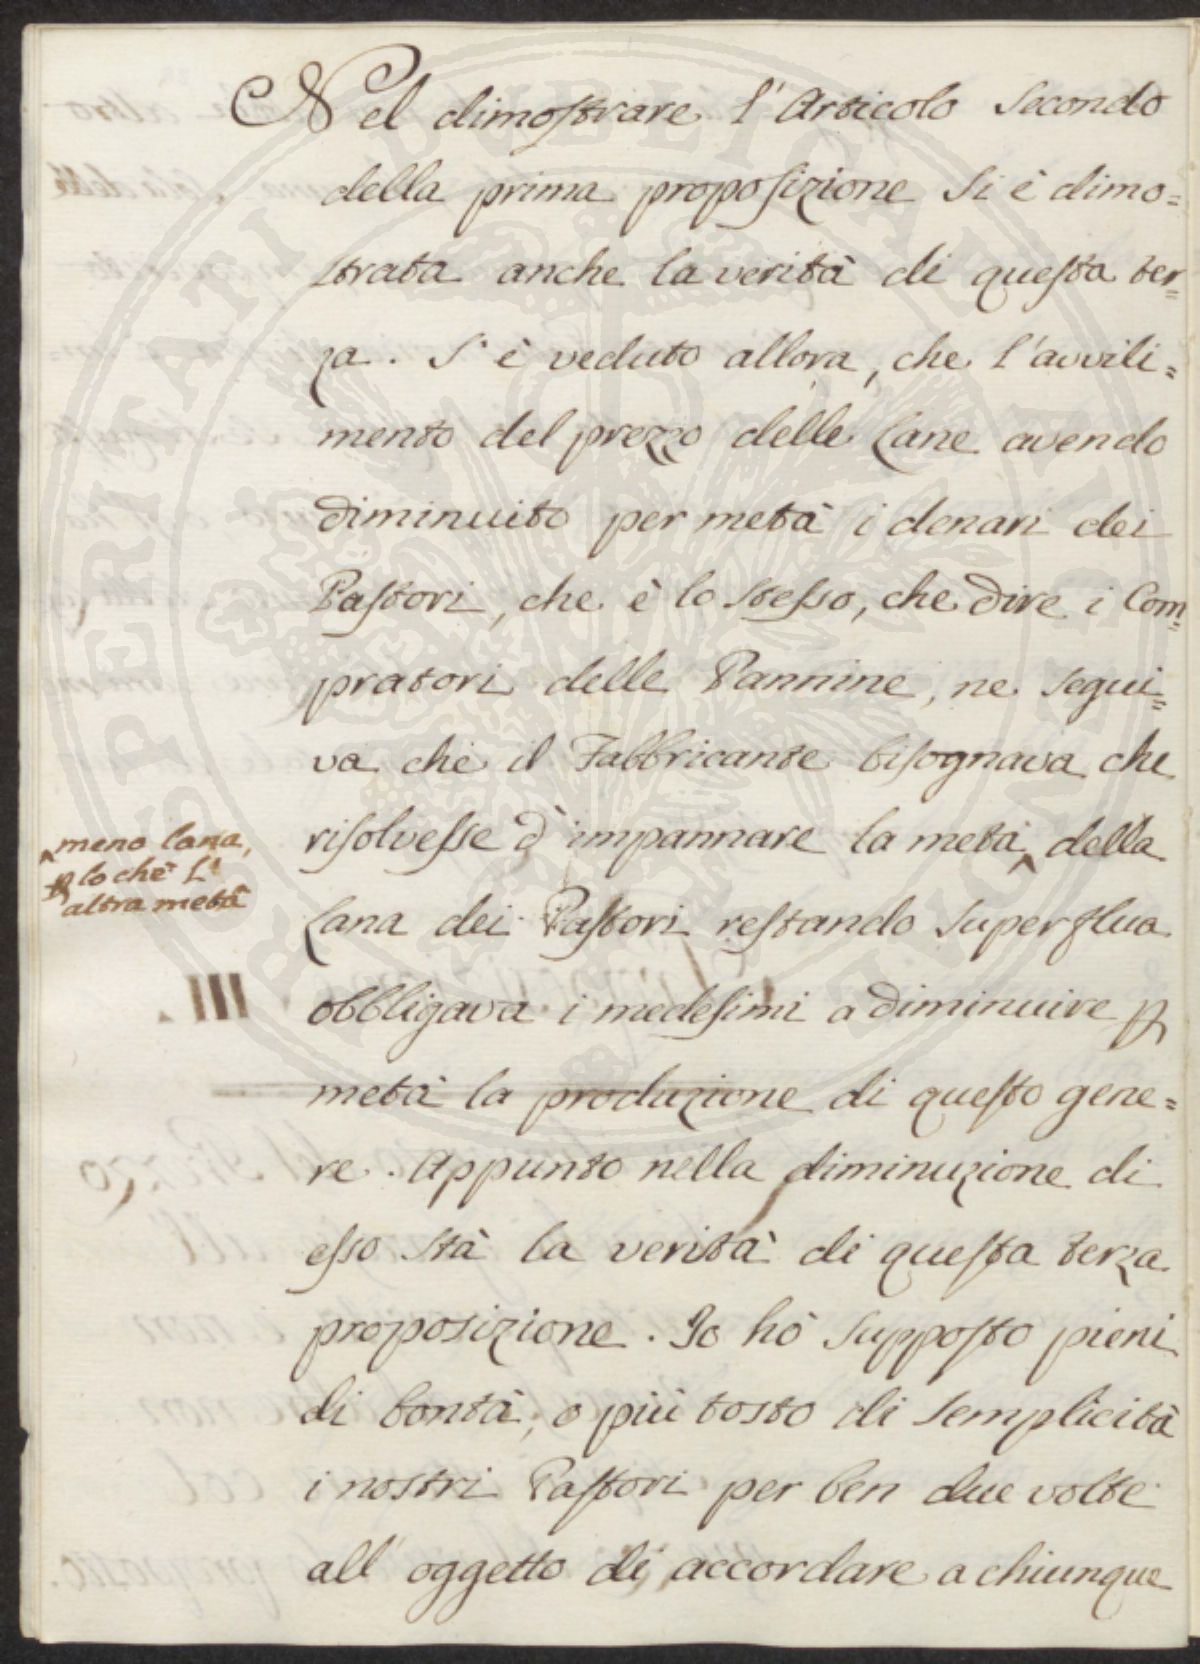 Nel dimostrare l'Articolo Secondo
della prima proposizione si è dimo=
strata anche la verità di questa ter=
za. S'è veduto allora, che l'avvili=
mento del prezzo delle Lane avendo
diminuito per metà i denari dei
Pastori, che è lo stesso, che dire i Com=
pratori delle Pannine, ne segui=
va che il Fabbricante bisognava che
risolvesse d'impannare la metà ^ della
^ meno lana,
p lo chè l'
altra metà
Lana dei Pastori restando superflua
obbligava i medesimi a diminuire p
metà la produzione di questo gene=
re. Appunto nella diminuzione di
esso stà la verità di questa terza
proposizione. Io hò supposto pieni
di bontà, o più tosto di semplicità
i nostri Pastori per ben due volte
all'oggetto di accordare a chiunque
III
PROSPERITATI PUBLICAE AUGENDAE